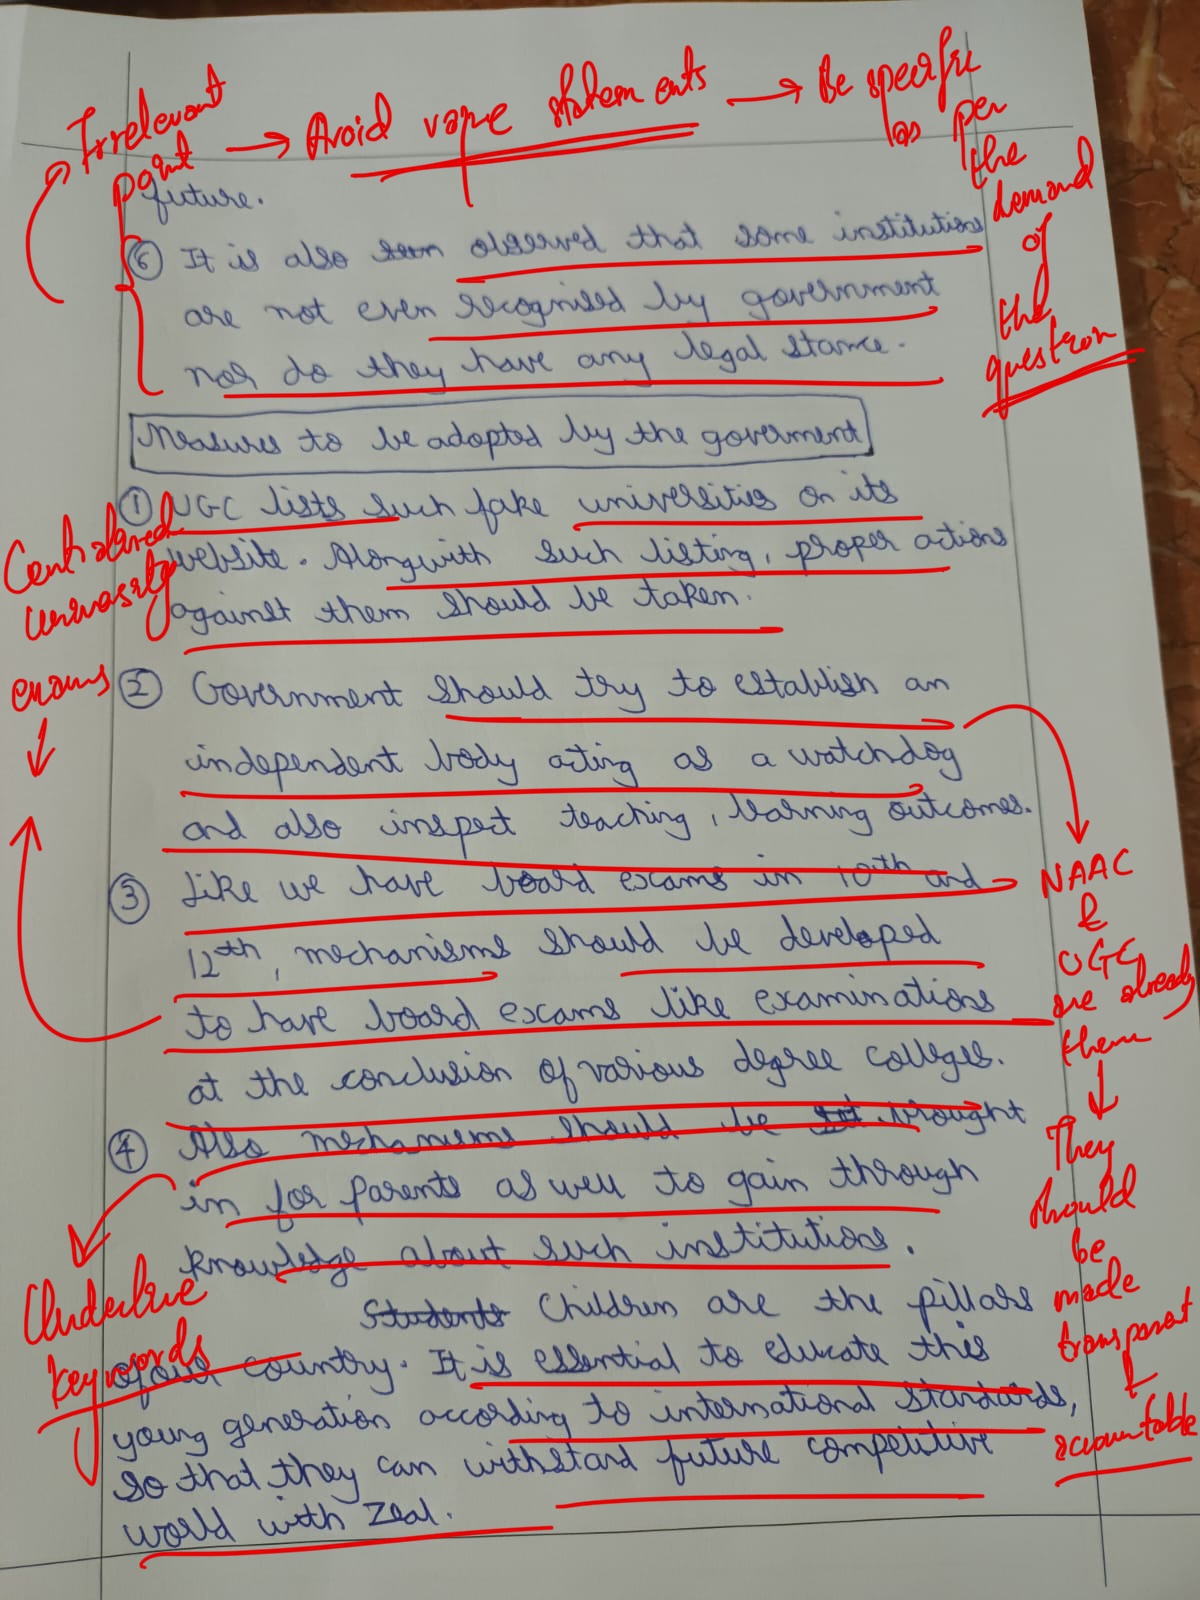 Irrelevant
point
→ Avoid vague statements → Be specific
as per
the
demand
of
the
question
future.
⑥ It is also observed that some institutions
are not even recognised by government
nor do they have any legal stance.
Measures to be adopted by the goverment
① UGC lists such fake universities on its
website. Alongwith such listing, proper actions
against them should be taken.
Centralized
university
exams
② Government should try to establish an
independent body acting as a watchdog
and also inspect teaching, learning outcomes.
NAAC
&
UGC
are already
there
↓
They
should
be
made
transparent
&
accountable
③ Like we have board exams in 10th and
12th, mechanisms should be developed
to have board exams like examinations
at the conclusion of various degree colleges.
④ Also mechanisms should be brought
in for parents as well to gain through
knowledge about such institutions.
Underline
keywords
Students Children are the pillars
of our country. It is essential to educate this
young generation according to international standards,
so that they can withstand future competitive
world with zeal.